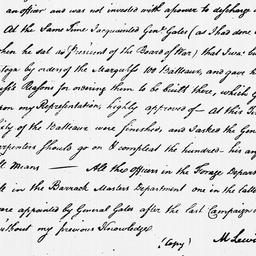 an officer and was not invested with a power to discharge
At the same time I acquainted Genl. Gates (as I had done
when he sat as President of the Board of War) that I was
toga by orders of the Marquiss 100 Batteaux, and gave
Reasons for ordering them to be built there, which
on my Representation, highly approved of — At this
of the Batteaux were finished, and I asked the Genl
Carpenters should go on & compleat the hundred — his
Means — All the officers in the Forage Depart
in the Barrack Masters Department one in the latter
were appointed by General Gates after the last Campaign
without my previous Knowledge
(Copy) M Lewis